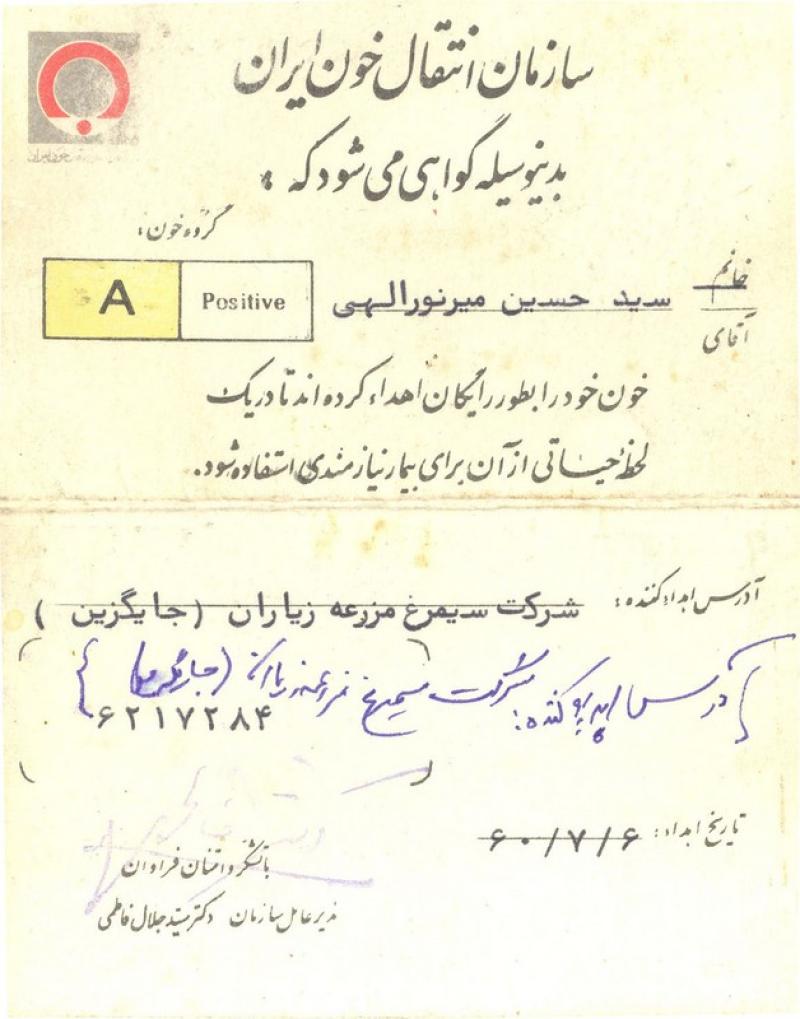 سازمان انتقال خون ایران
بدینوسیله گواهی می شود که :
گروه خون :
A Positive
خانم
سید حسین میرنورالهی
آقای
خون خود را بطور رایگان اهداء کرده اند تا در یک
لحظه حیاتی از آن برای بیمار نیازمندی استفاده شود.
آدرس اهداء کننده : شرکت سیمرغ مزرعه زیاران ( جایگزین )
آدرس کننده : شرکت سیمرغ مزرعه زیاران
۶۲۱۷۲۸۴
تاریخ اهداء : ۶۰/۷/۶
با تشکر و امتنان فراوان
مدیر عامل سازمان دکتر سید جلال فاطمی